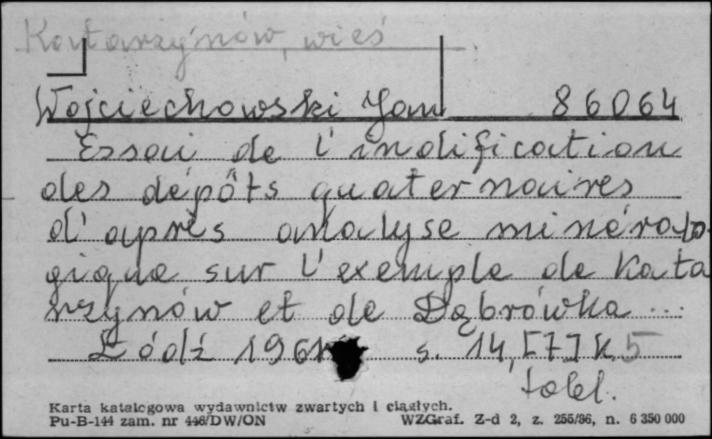 Katarzynów, wieś
Wojciechowski Jan 86064
Essai de l'indification
des dépôts quaternaires
d'après analyse minéralo-
gique sur l'exemple de Kata
rzynów et de Dąbrówka ...
Łódź 1961 s. 14, [7] K 5
tabl.
Karta katalogowa wydawnictw zwartych i ciągłych.
Pu-B-144 zam. nr 446/DW/ON WZGraf. Z-d 2, z. 255/86, n. 6 350 000